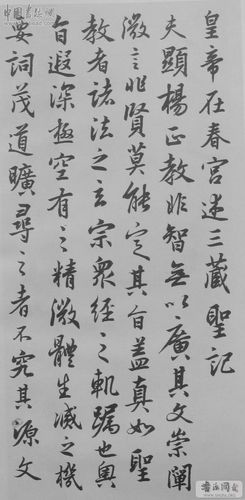 皇帝在春宮述三藏聖記
夫顯楊正教非智無以廣其文崇闡
微言非賢莫能定其旨蓋真如聖
教者諸法之玄宗眾經之軌躅也奧
旨遐深極空有之精微體生滅之機
要詞茂道曠尋之者不究其源文